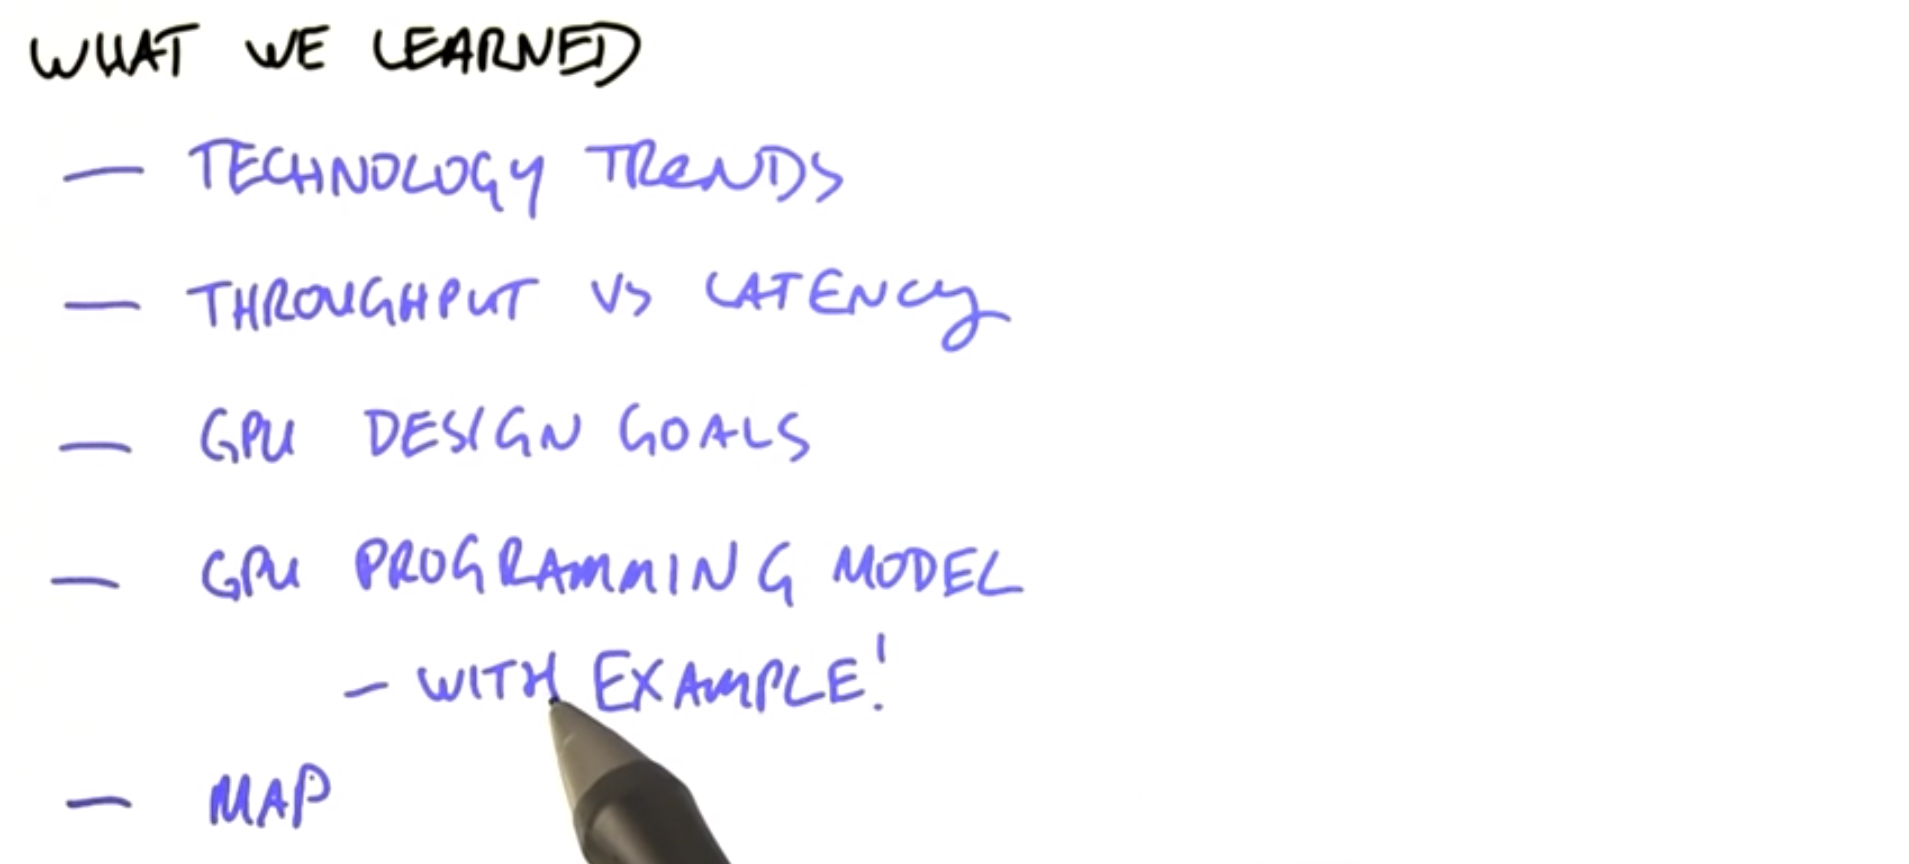 WHAT WE LEARNED
— TECHNOLOGY TRENDS
— THROUGHPUT VS LATENCY
— GPU DESIGN GOALS
— GPU PROGRAMMING MODEL
- WITH EXAMPLE!
— MAP